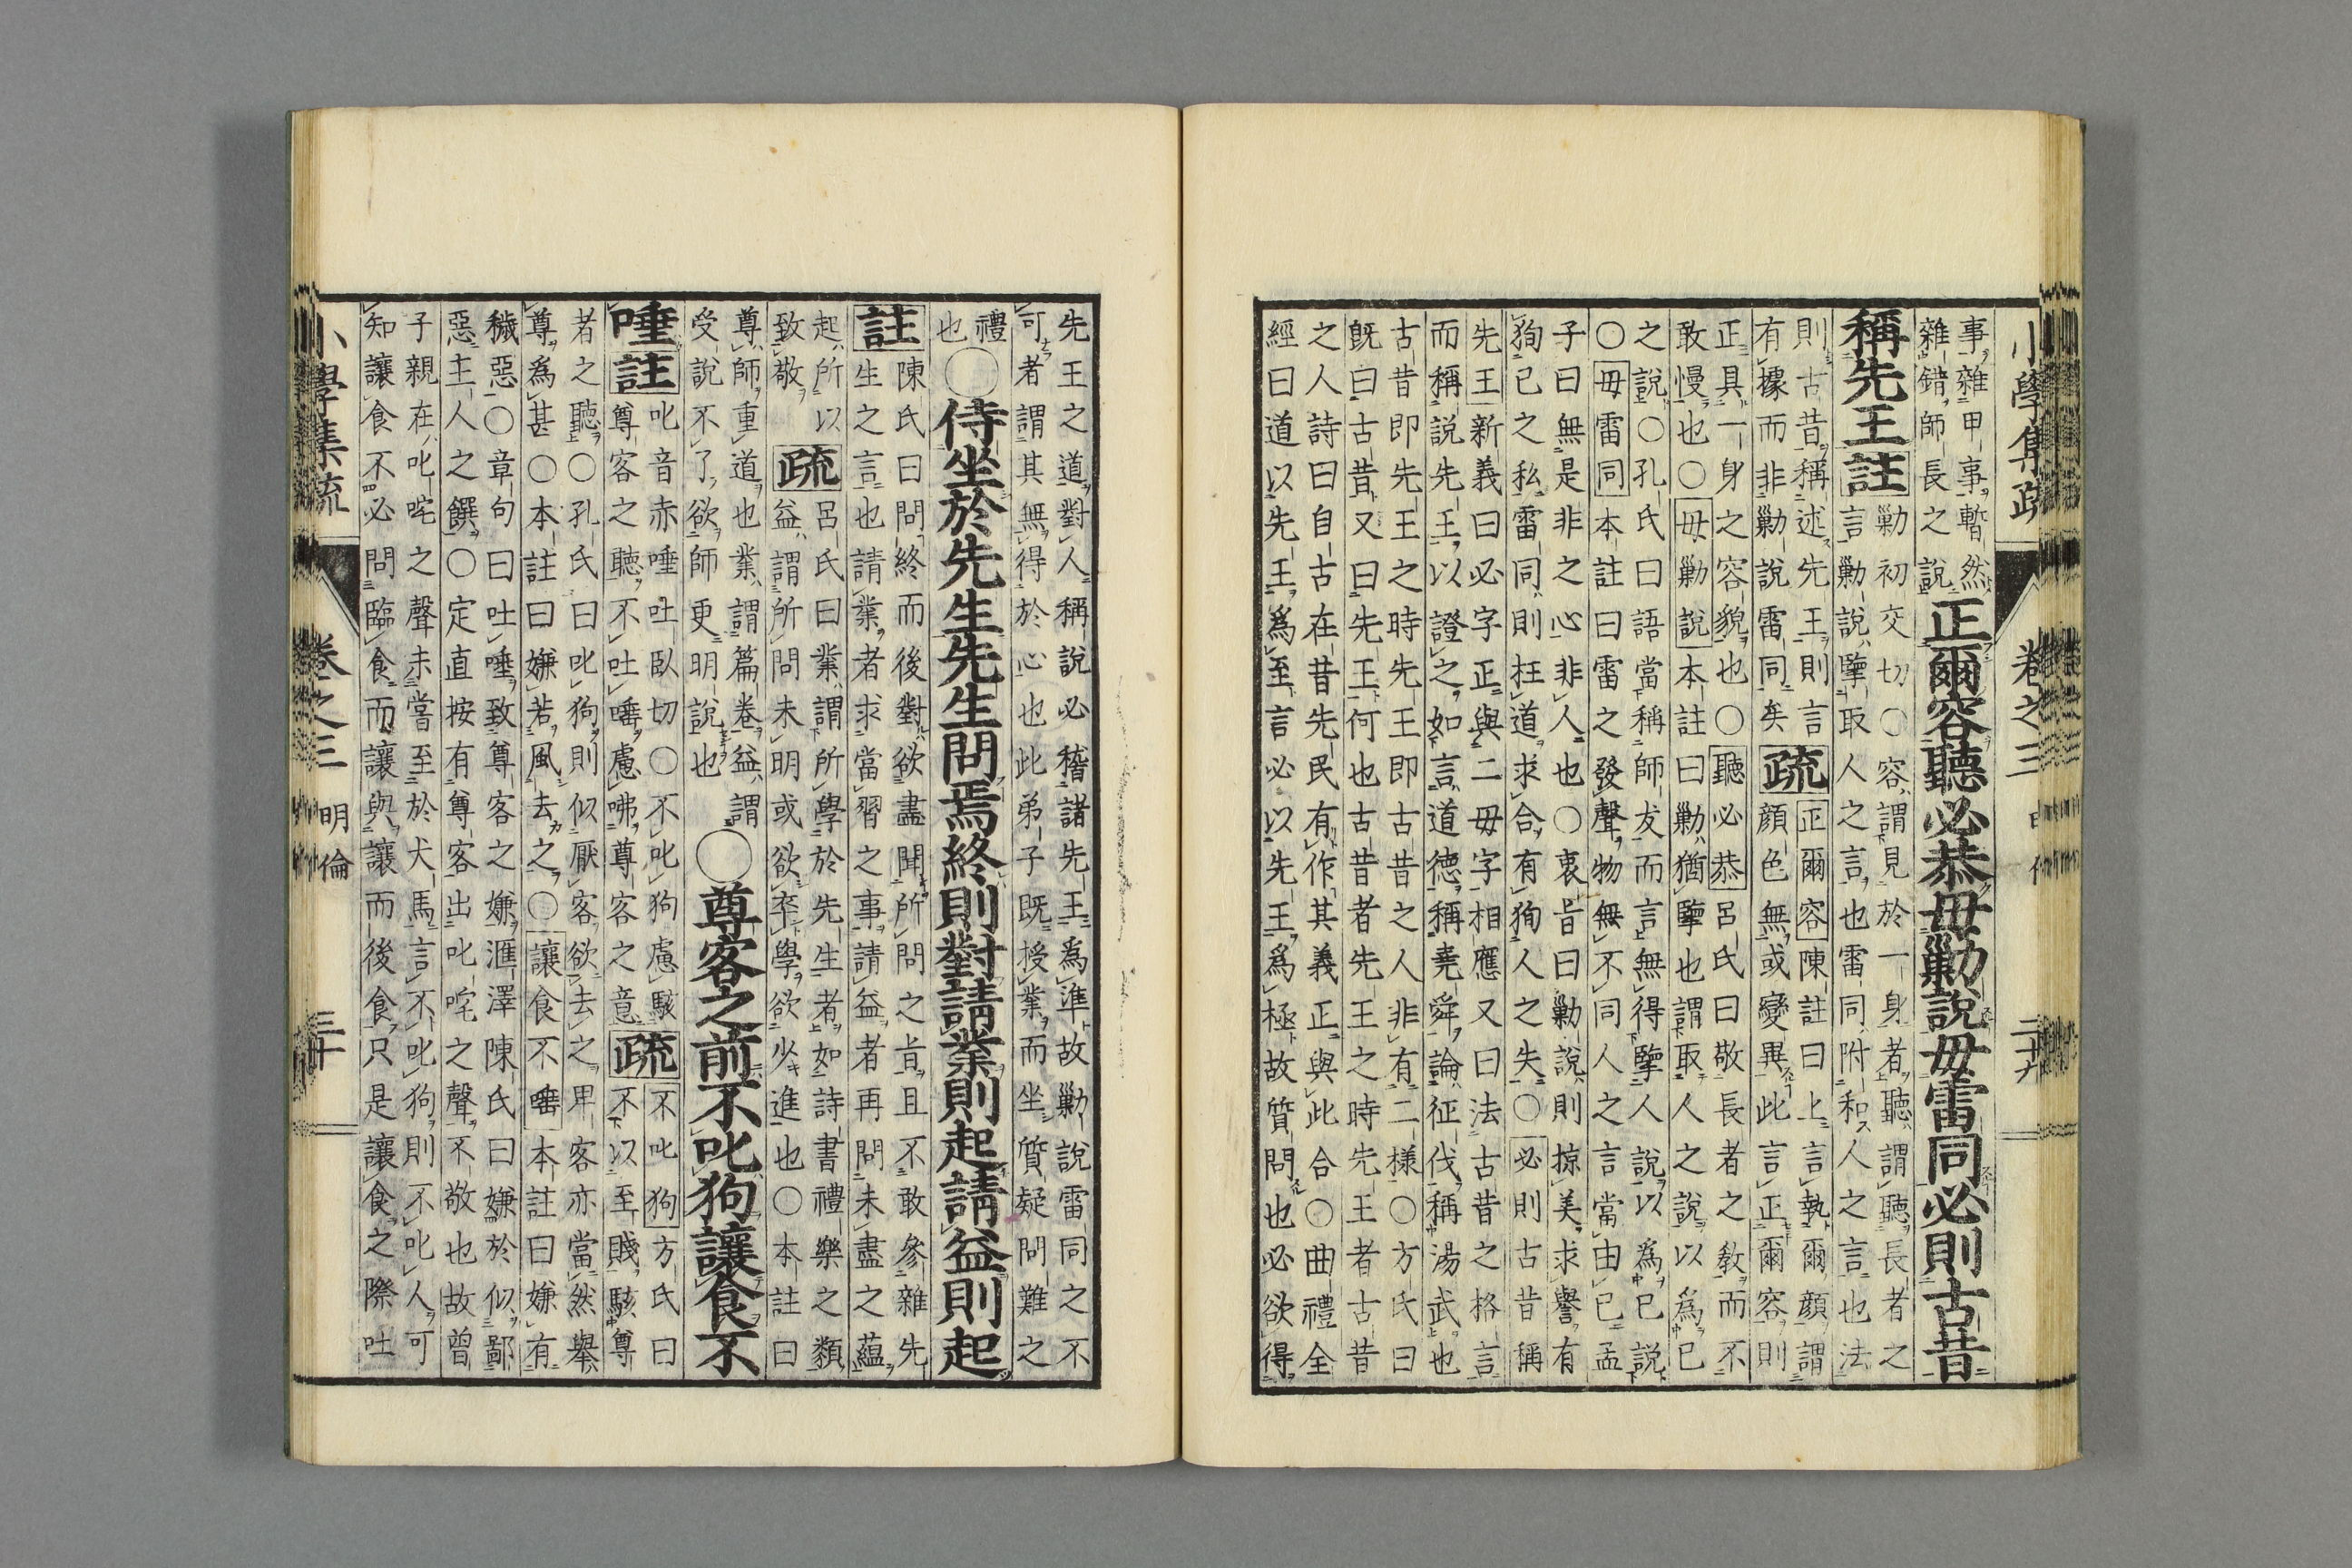 小學集疏
卷之三
二十九
事雜甲事暫然
雜錯師長之說
正爾容聽必恭毋勦說毋雷同必則古昔
稱先王註
勦初交切○容謂見於一身者聽謂聽長者之
言勦說擥取人之言也雷同附和人之言也法
則古昔稱述先王則言
有據而非勦說雷同矣
疏
正爾容陳註曰上言執爾顏謂
顏色無或變異此言正爾容則
正具一身之容貌也○聽必恭呂氏曰敬長者之教而不
敢慢也○毋勦說本註曰勦猶擥也謂取人之說以為己
之說○孔氏曰語當稱師友而言無得擥人說以為己說
○毋雷同本註曰雷之發聲物無不同人之言當由己孟
子曰無是非之心非人也○衷旨曰勦說則掠美求譽有
狥己之私雷同則枉道求合有狥人之失○必則古昔稱
先王新義曰必字正與二毋字相應又曰法古昔之格言
而稱說先王以證之如言道德稱堯舜論征伐稱湯武也
古昔即先王之時先王即古昔之人非有二樣○方氏曰
既曰古昔又曰先王何也古昔者先王之時先王者古昔
之人詩曰自古在昔先民有作其義正與此合○曲禮全
經曰道以先王為至言必以先王為極故質問也必欲得
先王之道對人稱說必稽諸先王為準故勦說雷同之不
可者謂其無得於心也此弟子既授業而坐質疑問難之
禮
也
○侍坐於先生先生問焉終則對請業則起請益則起
註
陳氏曰問終而後對欲盡聞所問之旨且不敢參雜先
生之言也請業者求當習之事請益者再問未盡之蘊
起所以
致敬
疏
呂氏曰業謂所學於先生者如詩書禮樂之類
益謂所問未明或欲卒學欲少進也○本註曰
尊師重道也業謂篇卷益謂
受說不了欲師更明說也
○尊客之前不叱狗讓食不
唾註
叱音赤唾吐臥切○不叱狗慮駭
尊客之聽不吐唾慮咈尊客之意
疏
不叱狗方氏曰
不以至賤駭尊
者之聽○孔氏曰叱狗則似厭客欲去之卑客亦當然舉
尊為甚○本註曰嫌若風去之○讓食不唾本註曰嫌有
穢惡○章句曰吐唾致尊客之嫌滙澤陳氏曰嫌於似鄙
惡主人之饌○定直按有尊客出叱咤之聲不敬也故曾
子親在叱咤之聲未嘗至於犬馬言不叱狗則不叱人可
知讓食不必問臨食而讓與讓而後食只是讓食之際吐
小學集疏
卷之三
明倫
三十